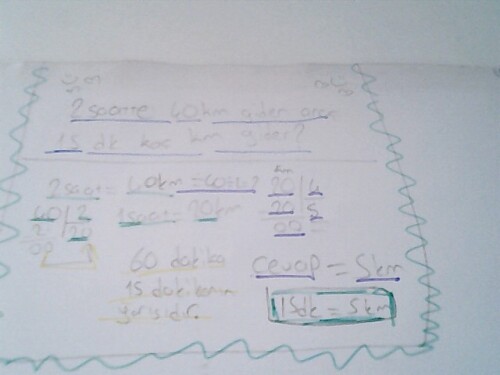 2 saatte 40 km giden araç
15 dk kaç km gider?
2 saat = 40 km
1 saat = 20 km
40 2
2 20
00
km
20 4
20 5
00
60 dakika
15 dakikanın
yarısıdır.
Cevap = 5 km
15 dk = 5 km